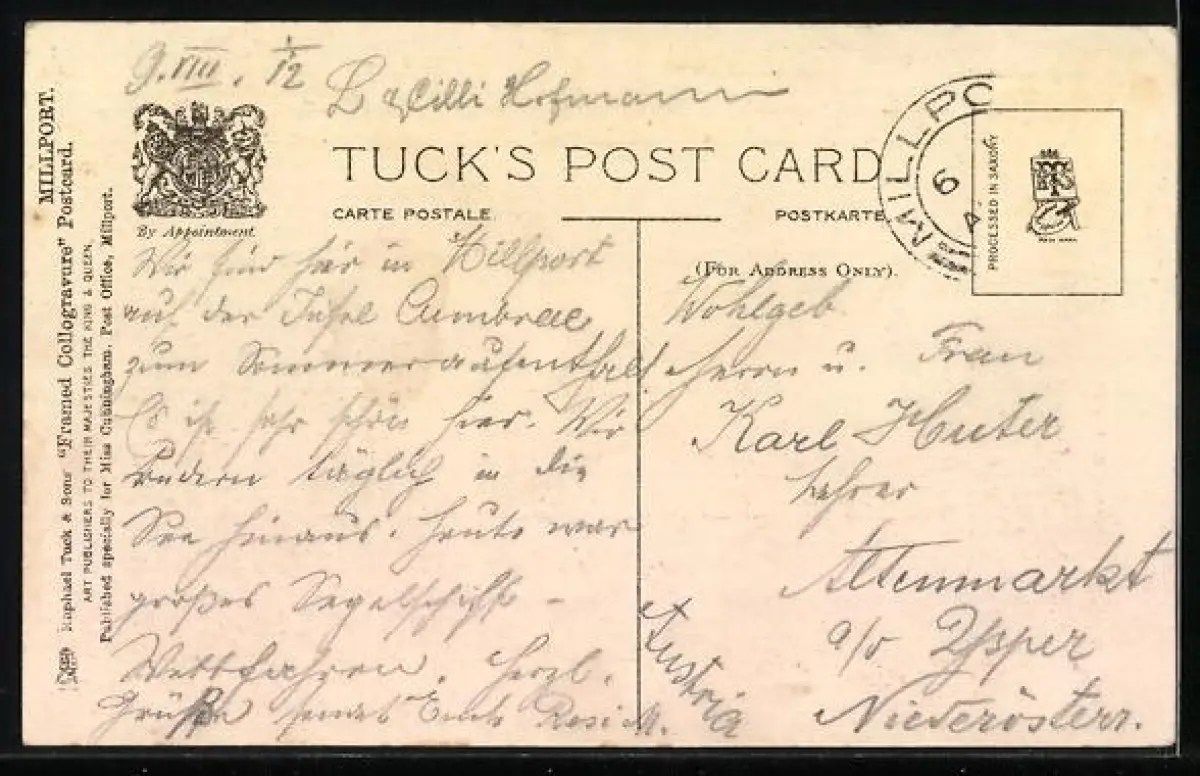 9. VIII. 12
Cilli Hofmann
TUCK'S POST CARD
CARTE POSTALE.
POSTKARTE.
By Appointment.
(FOR ADDRESS ONLY).
PROCESSED IN SAXONY
MILLPO
6
A
MILLPORT.
Raphael Tuck & Sons' "Framed Collogravure" Postcard.
ART PUBLISHERS TO THEIR MAJESTIES THE KING & QUEEN.
Published specially for Miss Cunningham, Post Office, Millport.
Wir sind hier in Millport
auf der Insel Cumbrae
zum Sommeraufenthalt
Es ist sehr schön hier. Wir
rudern täglich in die
See hinaus. Heute war
großes Segelschiff-
Wettfahren. Herzl.
Grüße sendet Euch Resi M.
Wohlgeb.
Herrn u. Frau
Karl Huter
Lehrer
Altenmarkt
a/d Ysper
Niederösterr.
Austria